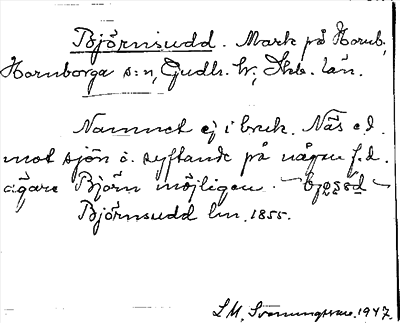 Björnsudd. Mark på Hornb.,
Hornborga s:n, Gudh. hr, Skb. län.
Namnet ej i bruk. Näs o.d.
mot sjön ö. syftande på någon f.d.
ägare Björn möjligen.
Björnsudd lm. 1855.
L M. Svenungsson. 1947.